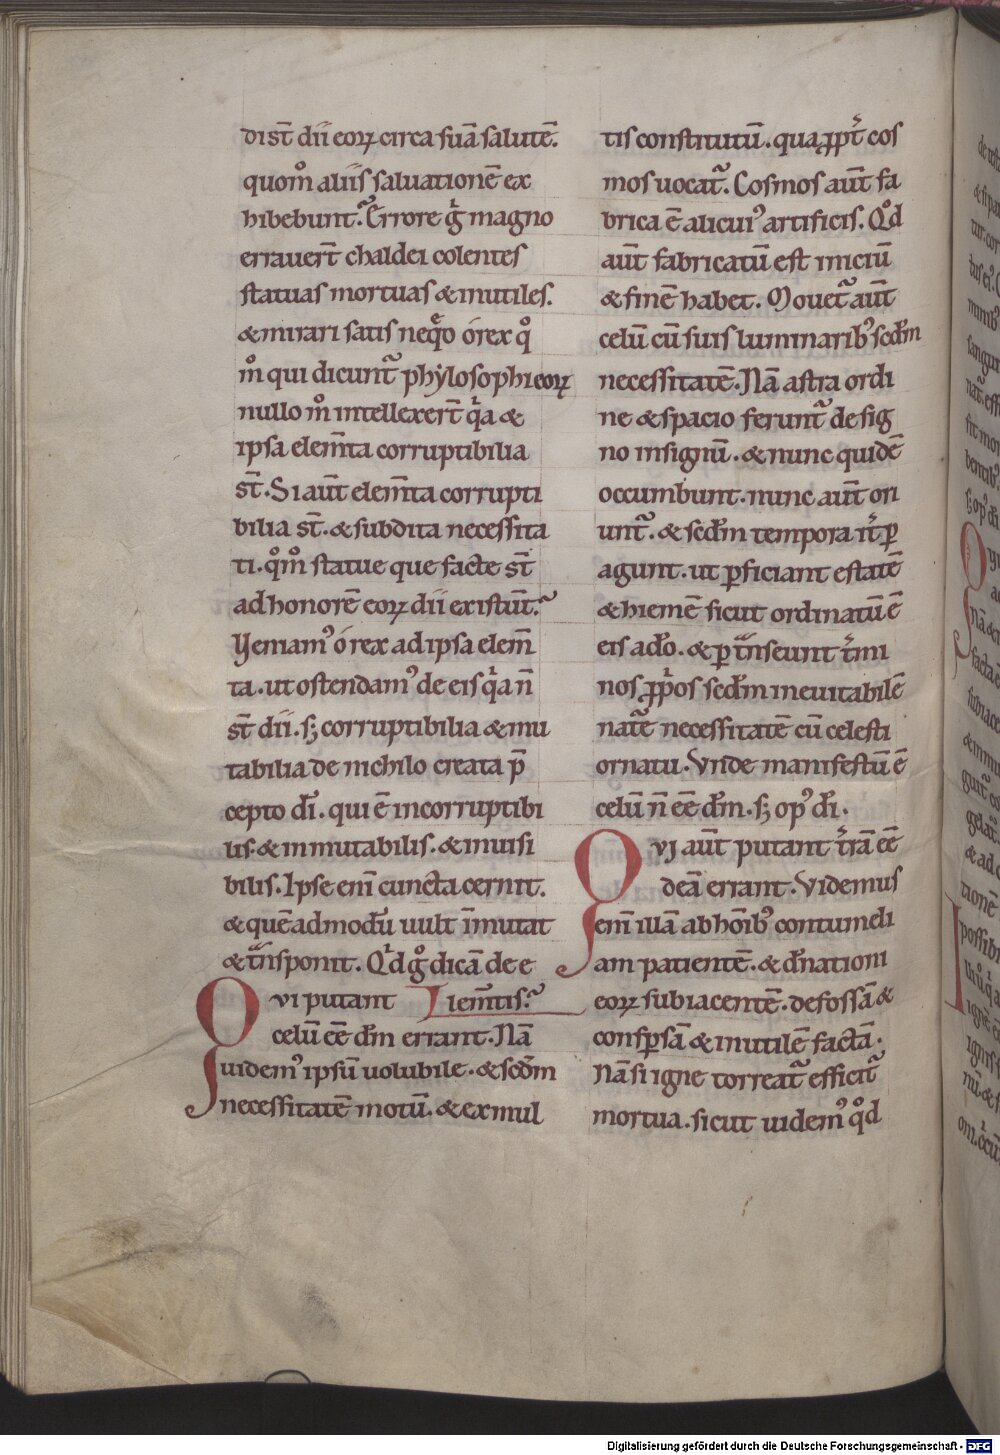 dist̄ dii eoꝝ circa suā salutē.
quom̊ aliis saluationē ex
hibebunt? Errore g̊ magno
erraueꝛt̄ chaldei colentes
statuas mortuas & inutiles.
& mirari satis nequeo o rex q̊
m̊ qui dicunt᷑ phylosophi eoꝝ
nullo m̊ intellexert̄ qͥa &
ipsa elem̄ta corruptibilia
st̄. Si aut̄ elem̄ta corrupti
bilia st̄. & subdita necessita
ti. q̊m̊ statue que facte st̄
ad honorē eoꝝ dii existūt?
Veniamꝰ o rex ad ipsa elem̄
ta. ut ostendamꝰ de eis qͥa n̄
st̄ dii. sꝫ corruptibilia & mu
tabilia de nichilo creata p̄
cepto dī. qui ē incorruptibi
lis & inmutabilis. & inuisi
bilis. Ipse eni cuncta cernit.
& quēadmodū uult īmutat
& tͣnsponit. Qͥd g̊ dicā de e
lem̄tis?
Qvi putant
celū eē dm̄ errant. Nā
uidemꝰ ipsū uolubile. & scdm̄
necessitatē motū. & ex mul
tis constitutū. qua ꝓpt̄ cos
mos uocat᷑. Cosmos aut̄ fa
brica ē alicuiꝰ artificis. Qd̊
aut̄ fabricatū est iniciū
& finē habet. Mouet᷑ aut̄
celū cū suis luminaribꝰ scdm̄
necessitatē. Nā astra ordi
ne & spacio ferunt᷑ de sig
no in signū. & nunc quidē
occumbunt. nunc aut̄ ori
unt᷑. & scdm̄ tempora it̄ ꝑ
agunt. ut ꝑficiant estatē
& hiemē sicut ordinatū ē
eis a do. & ꝑtͣnseunt tͥmi
nos ꝓpͥos scdm̄ ineuitabilē
natē necessitatē cū celesti
ornatu. Vnde manifestū ē
celū n̄ eē dm̄. sꝫ opꝰ dī.
Qvi aut̄ putant t̄rā eē
deā errant. Videmus
enī illā ab hoībꝰ contumeli
am patientē. & dn̄ationi
eoꝝ subiacentē. defossā &
conspersā & inutilē factā.
Nā si igne torreat᷑ efficit᷑
mortua. sicut uidemꝰ q̊d
Digitalisierung gefördert durch die Deutsche Forschungsgemeinschaft - DFG